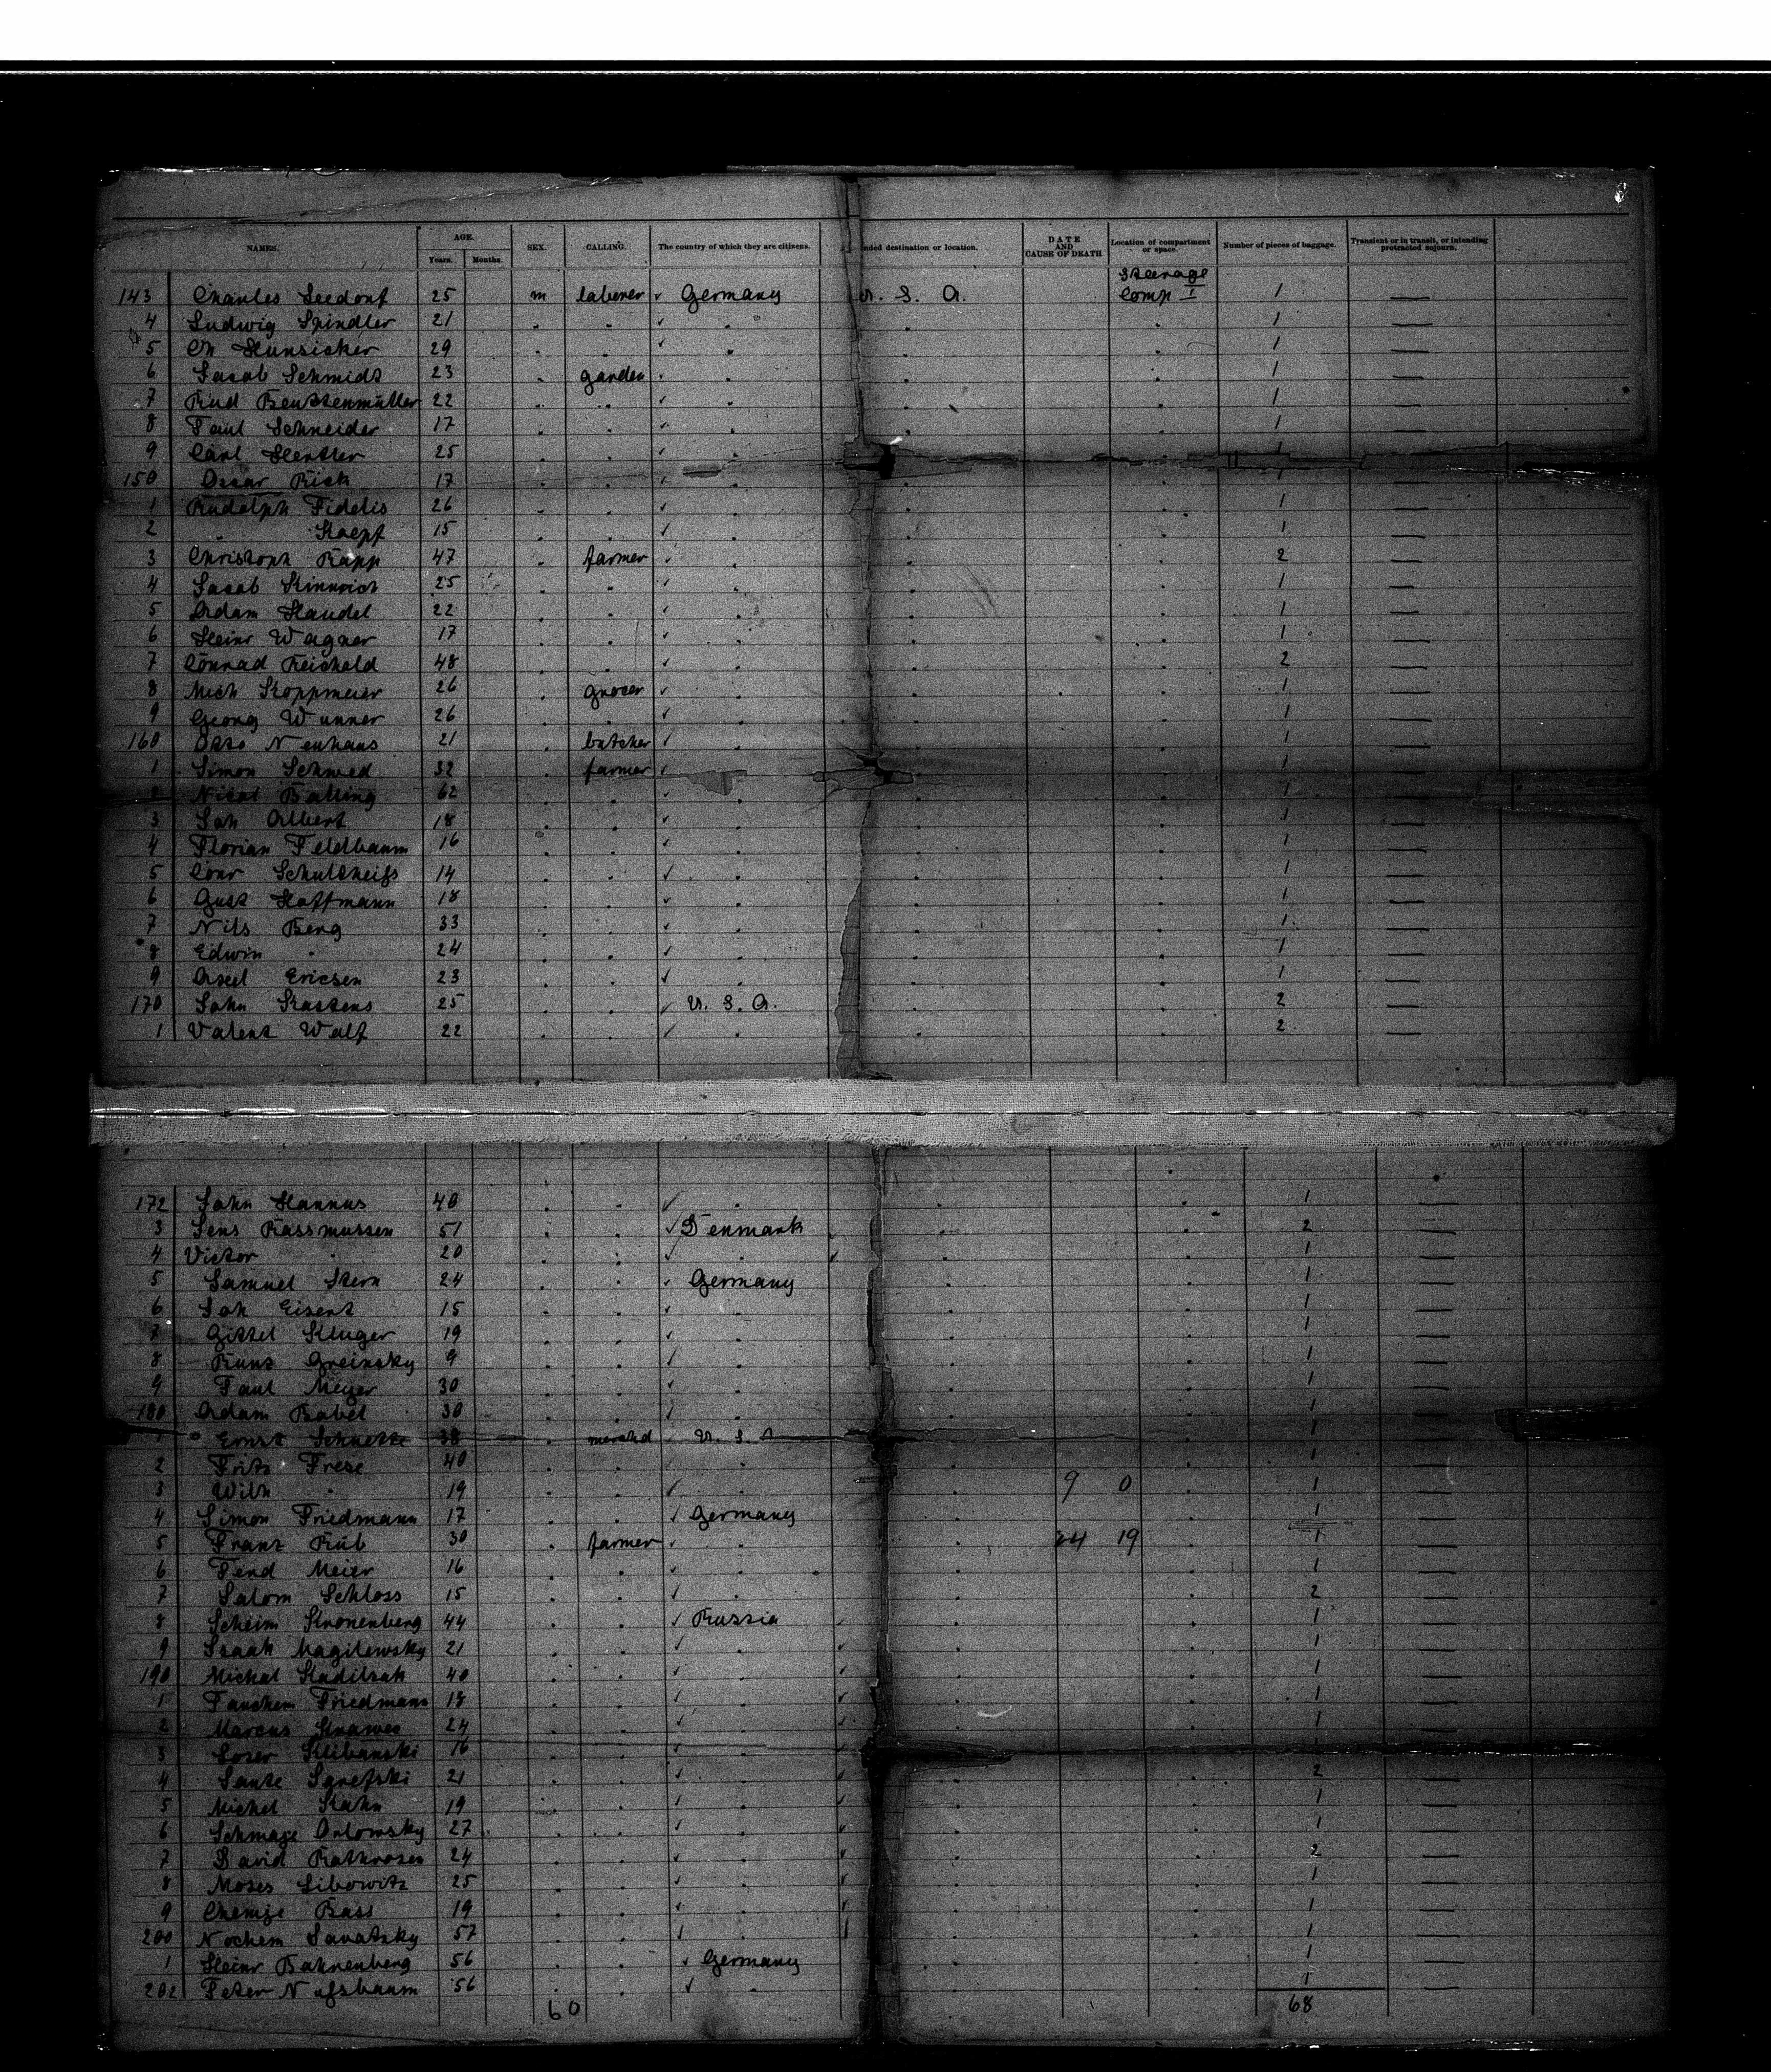 NAMES. AGE. SEX. CALLING. The country of which they are citizens. nded destination or location. DATE AND CAUSE OF DEATH Location of compartment or space. Number of pieces of baggage. Transient or in transit, or intending protracted sojourn.
Years. Months.
Steerage
143 Charles Seedorf 25 m laborer ✓ Germany U. S. A. Comp I 1 —
4 Ludwig Spindler 21 . . ✓ . . . 1 —
5 Ch Hunsicker 29 . . ✓ . . . 1 —
6 Jacob Schmidt 23 . garden ✓ . . . 1 —
7 Rud Beuttenmüller 22 . . ✓ . . . 1 —
8 Paul Schneider 17 . . ✓ . . . 1 —
9 Carl Hertler 25 . . ✓ . . . 1 —
150 Oscar Rich 17 . . ✓ . . . 1 —
1 Rudolph Fidelis 26 . . ✓ . . . 1 —
2 " Koepf 15 . . ✓ . . . 1 —
3 Christoph Rapp 47 . farmer ✓ . . . 2 —
4 Jacob 25 . . ✓ . . . 1 —
5 Adam Handel 22 . . ✓ . . . 1 —
6 Heinr Wagner 17 . . ✓ . . . 1 —
7 Conrad Reichold 48 . . ✓ . . . 2 —
8 Mich Koppmeier 26 . grocer ✓ . . . 1 —
9 Georg Wunner 26 . . ✓ . . . 1 —
160 Otto Neuhaus 21 . butcher ✓ . . . 1 —
1 Simon Schwed 32 . farmer ✓ . . . 1 —
2 Nicol Balling 62 . . ✓ . . . 1 —
3 Joh Albert 18 . . ✓ . . . 1 —
4 Florian Feldbaum 16 . . ✓ . . . 1 —
5 Conr Schultheiſs 14 . . ✓ . . . 1 —
6 Gust Hoffmann 18 . . ✓ . . . 1 —
7 Nils Berg 33 . . ✓ . . . 1 —
8 Edwin " 24 . . ✓ . . . 1 —
9 Axel Ericsen 23 . . ✓ . . . 1 —
170 John Kastens 25 . . ✓ U. S. A. . . 2 —
1 Valent Walf 22 . . ✓ . . . 2 —
172 John Hannus 40 . . ✓ . . . 1 —
3 Jens Rassmussen 51 . . ✓ Denmark . . 2 —
4 Victor " 20 . . ✓ . . . 1 —
5 Samuel Stern 24 . . ✓ Germany . . 1 —
6 Joh Eisert 15 . . ✓ . . . 1 —
7 Gittel Kluger 19 . . ✓ . . . 1 —
8 Greizsky 9 . . ✓ . . . 1 —
9 Paul Meyer 30 . . ✓ . . . 1 —
180 Adam Babel 30 . . ✓ . . . 1 —
1 Ernst Schuette 38 . merchd ✓ U. S. A . . 1 —
2 Fritz Frese 40 . . ✓ . . . 1 —
3 Wilh " 19 . . ✓ . . 9 0 . 1 —
4 Simon Friedmann 17 . . ✓ Germany . . 1 —
5 Franz Rüb 30 . farmer ✓ . . 24 19 1 —
6 Ferd Meier 16 . . ✓ . . . 1 —
7 Salom Schloss 15 . . ✓ . . . 2 —
8 Scheim Kronenberg 44 . . ✓ Russia . . 1 —
9 Isaak Magilewsky 21 . . ✓ . . . 1 —
190 Michal 40 . . ✓ . . . 1 —
1 Friedmann 18 . . ✓ . . . 1 —
2 Marcus 24 . . ✓ . . . 1 —
3 Loser Klibanski 16 . . ✓ . . . —
4 21 . . ✓ . . . 2 —
5 Michel Kahn 19 . . ✓ . . . 1 —
6 Schmaje Orlowsky 27 . . ✓ . . . 1 —
7 David 24 . . ✓ . . . 2 —
8 Moses Libowitz 25 . . ✓ . . . 1 —
9 Chemje Bass 19 . . ✓ . . . 1 —
200 Nochem Savatzky 57 . . ✓ . . . 1 —
1 Heinr Bahnenberg 56 . . ✓ Germany . . 1 —
202 Peter Nuſsbaum 56 . . ✓ . . . 1 —
60 68